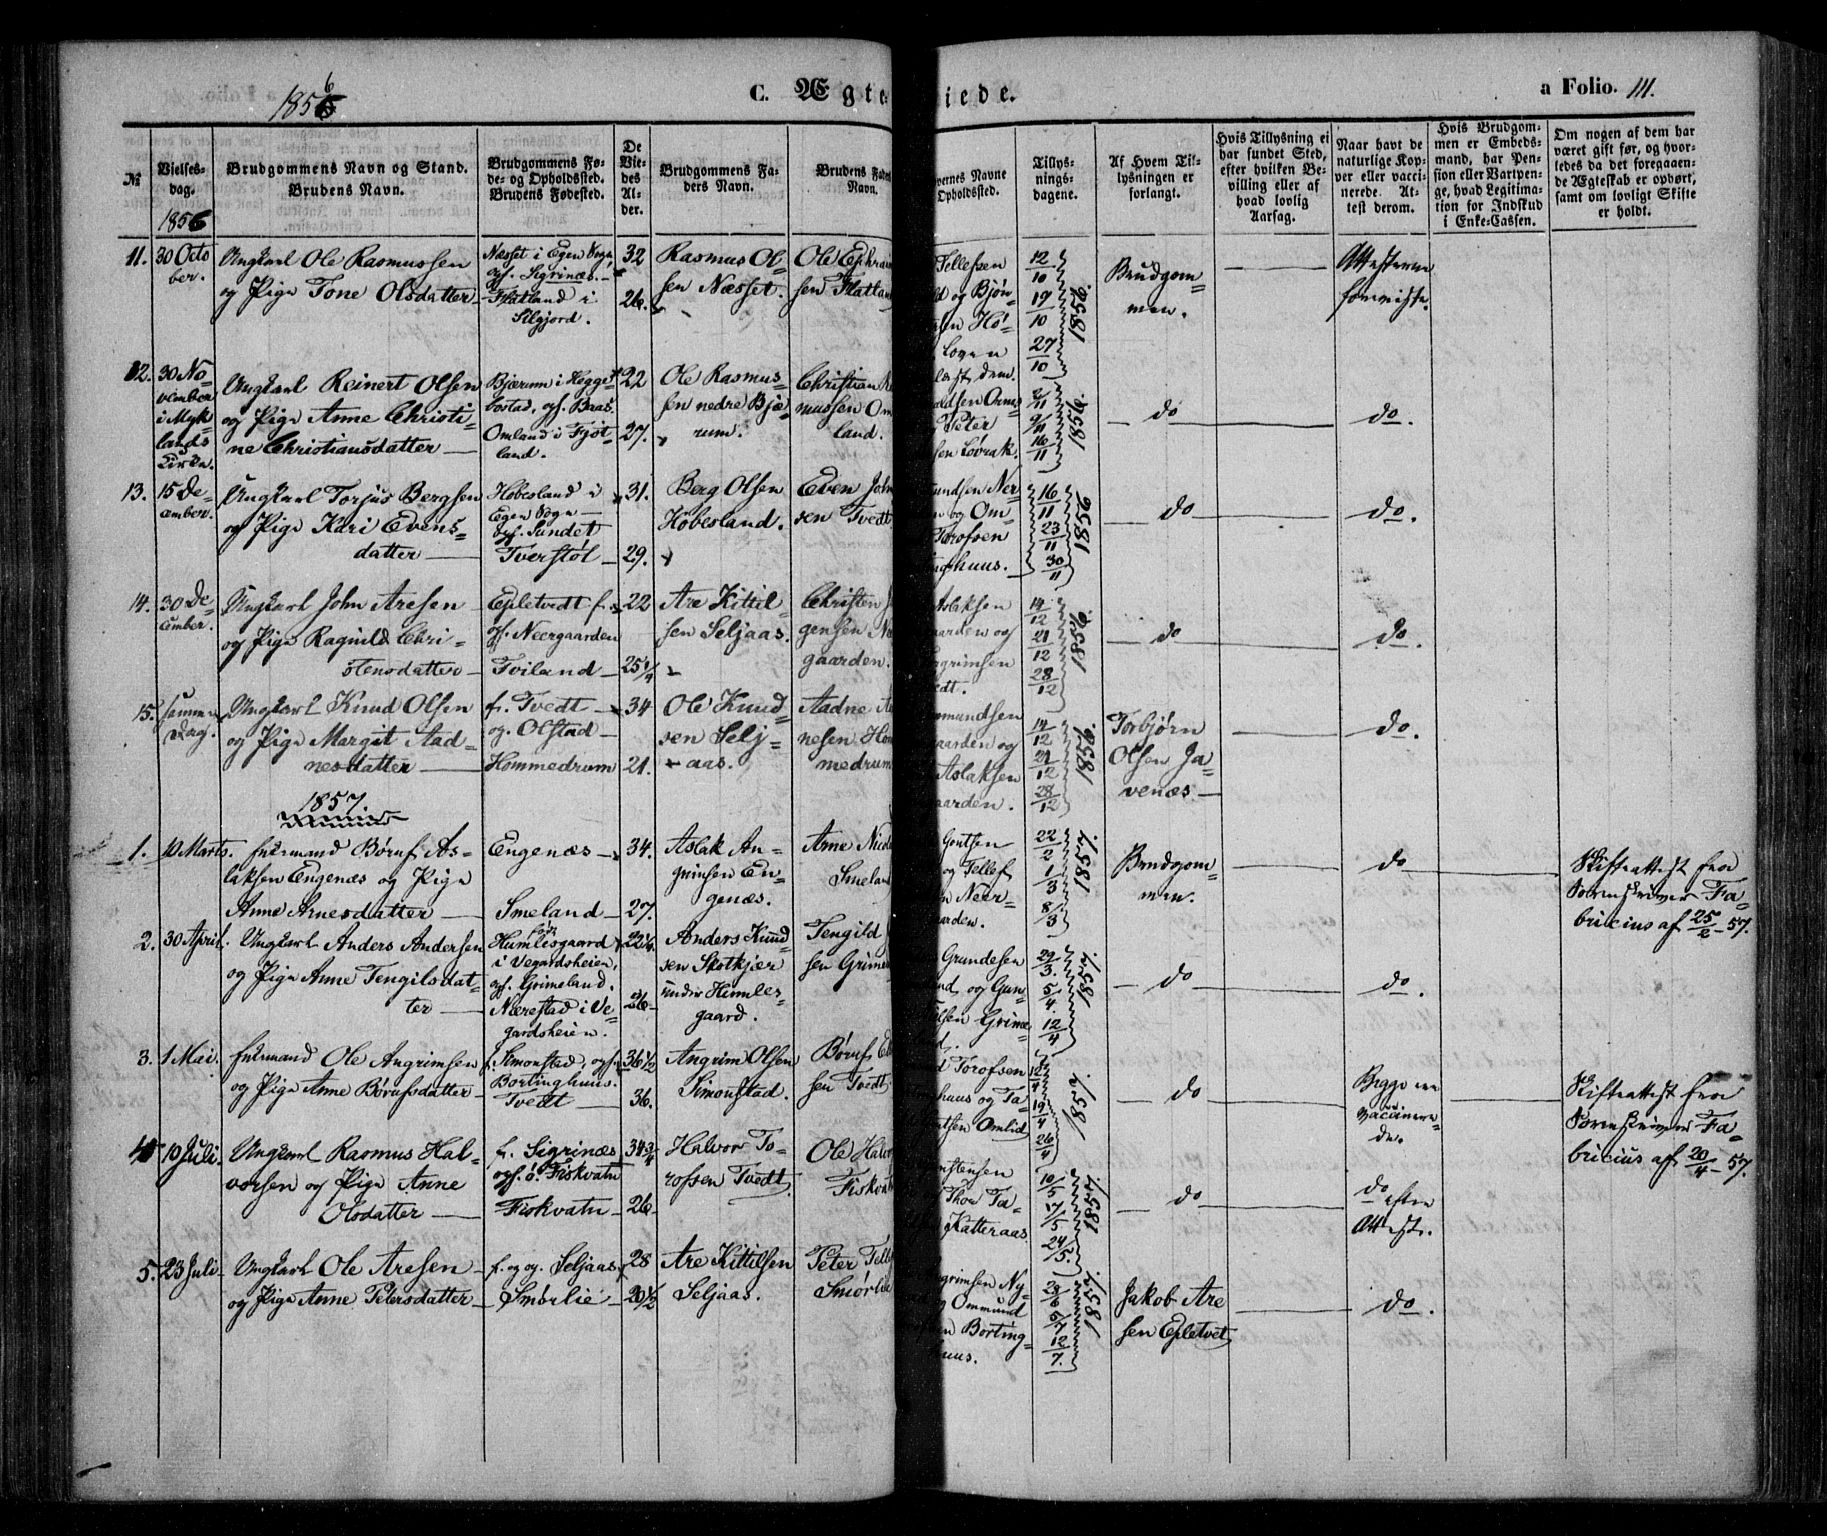 1856
C. Ægte
iede.
a Folio. 111.
№
Vielses-
dag.
1856
Brudgommens Navn og Stand.
Brudens Navn.
Brudgommens Fø-
de- og Opholdssted.
Brudens Fødested.
De
Vie-
des
Al-
der.
Brudgommens Fa-
ders Navn.
Brudens Fade
Navn.
vernes Navne
Opholdssted.
Tillys-
nings-
dagene.
Af Hvem Til-
lysningen er
forlangt.
Hvis Tillysning ei
har fundet Sted,
efter hvilken Be-
villing eller af
hvad lovlig
Aarsag.
Naar havt de
naturlige Kop-
per eller vacci-
nerede. At-
test derom.
Hvis Brudgom-
men er Embeds-
mand, har Pen-
sion eller Vartpen-
ge, hvad Legitima-
tion for Indskud
i Enke-Cassen.
Om nogen af dem har
været gift før, og hvor-
ledes da det foregaaen-
de Ægteskab er ophørt,
samt om lovligt Skifte
er holdt.
11. 30 Octo
ber.
Ungkarl Ole Rasmussen
og Pige Tone Olsdatter
Næsset i Egen Sogn,
og f. Sigrinæs.
Flatland i
Silgjord.
32
26.
Rasmus Ol-
sen Næsset.
Ole Ephram
sen Flatlan
Tellefsen
d og Bjøn-
sen Hø-
loven
læst dem.
12/10
19/10
27/10
1856
Brudgom-
men.
Attesterne
foreviste.
12. 30 No-
vember
i Myk-
lands
Kirke.
Ungkarl Reinert Olsen
og Pige Anne Christi-
ne Christiansdatter
Bjærum i Hegge-
bostad, opf. Baas.
Omland i Fjot-
land.
22
27.
Ole Rasmus-
sen nedre Bjæ-
rum.
Christian R
mussen Om
land.
oldsen Omm
Peter
sen Løvrak.
2/11
9/11
16/11
1856
do
do.
13. 15 De-
cember.
Ungkarl Torjus Bergsen
og Pige Kari Evens-
datter
Høbesland i
Egen Sogn
opf. Sundet
Tverstøl
31.
29.
Berg Olsen
Høbesland.
Even John
sen Tvedt
undsen Ner-
n og Om-
Torofsen
inghuus.
16/11
23/11
30/11
1856
do
do.
14. 30 De-
cember.
Ungkarl John Aresen
og Pige Ragnild Chri-
stensdatter
Epletvedt f.
opf. Neergaarden
Tviland
22
25 1/4
Are Kittil-
sen Seljaas.
Christen J
gensen Ne
gaarden.
Aslaksen
aarden og
ngrimsen
edt.
14/12
21/12
28/12
1856
do
do.
15. samme
Dag.
Ungkarl Knud Olsen
og Pige Margit Aad-
nesdatter
f. Tvedt
og. Olstad
Hommedrum
34
21.
Ole Knud-
sen Selj-
aas.
Aadne A
nesen Hom
medrum
mundsen
aarden og
Aslaksen
aarden.
14/12
21/12
28/12
1856
Torbjørn
Olsen Ja-
venæs
do.
1857.
1. 10 Marts.
Enkemand Børuf As-
laksen Engenæs og Pige
Anne Arnesdatter
Engenæs
Smeland
34.
27.
Aslak An-
grimsen En-
genæs.
Arne Nicol
Smelan
Gontsen
og Tellef
n Neer-
aarden.
22/2
1/3
8/3
1857
Brudgom-
men.
do
Skifteattest fra
Sorenskriver Fa-
bricius af 25/2 - 57.
2. 30 April.
Ungkarl Anders Andersen
og Pige Anne Tengilsdat-
ter
Humlesgaard
i Vegardsheien,
opf. Grimeland.
Nærestad i Ve-
gardsheien.
22 1/4
26
Anders Knud-
sen Skotkjær
under Humles-
gaard.
Tengild
sen Grime
Grundesen
nd, og Gun-
elsen Grime-
d.
29/3.
5/4
12/4
1857
do
do.
3. 1 Mai.
Enkemand Ole Angrimsen
og Pige Anne Børufsdatter
f. Simonstad, opf.
Bortinghuus.
Tvedt
36 1/2
36.
Angrim Olsen
Simonstad.
Børuf E
sen Tvedt
d Torofsen
haus og Ta-
ltsen Omlid
12/4
19/4
26/4
1857
do
Begge ere
vaccinere-
de.
Skifteattest fra
Sorenskriver Fa-
bricius af 20/4 - 57.
4 10 Juli
Ungkarl Rasmus Hal-
vorsen og Pige Anne
Olsdatter
f. Sigrinæs
opf. ø. Fiskvatn
Fiskvatn
34 3/4
26
Halvor To-
rofsen Tvedt.
Ole Halvo
Fiskvat
nstensen
Thor Ta-
Katteraas
10/5
17/5
24/5.
1857
do
do efter
Attester.
5. 23 Juli
Ungkarl Ole Aresen
og Pige Anne Petersdatter
f. og og. Seljaas
Smørlie
28
20 1/2
Are Kittilsen
Seljaas.
Peter Telle
Smørlie
ngrimsen Ny-
g Ommund
en Borting-
huus.
28/6
5/7
12/7.
1857
Jakob Are
sen Epletvet
do.